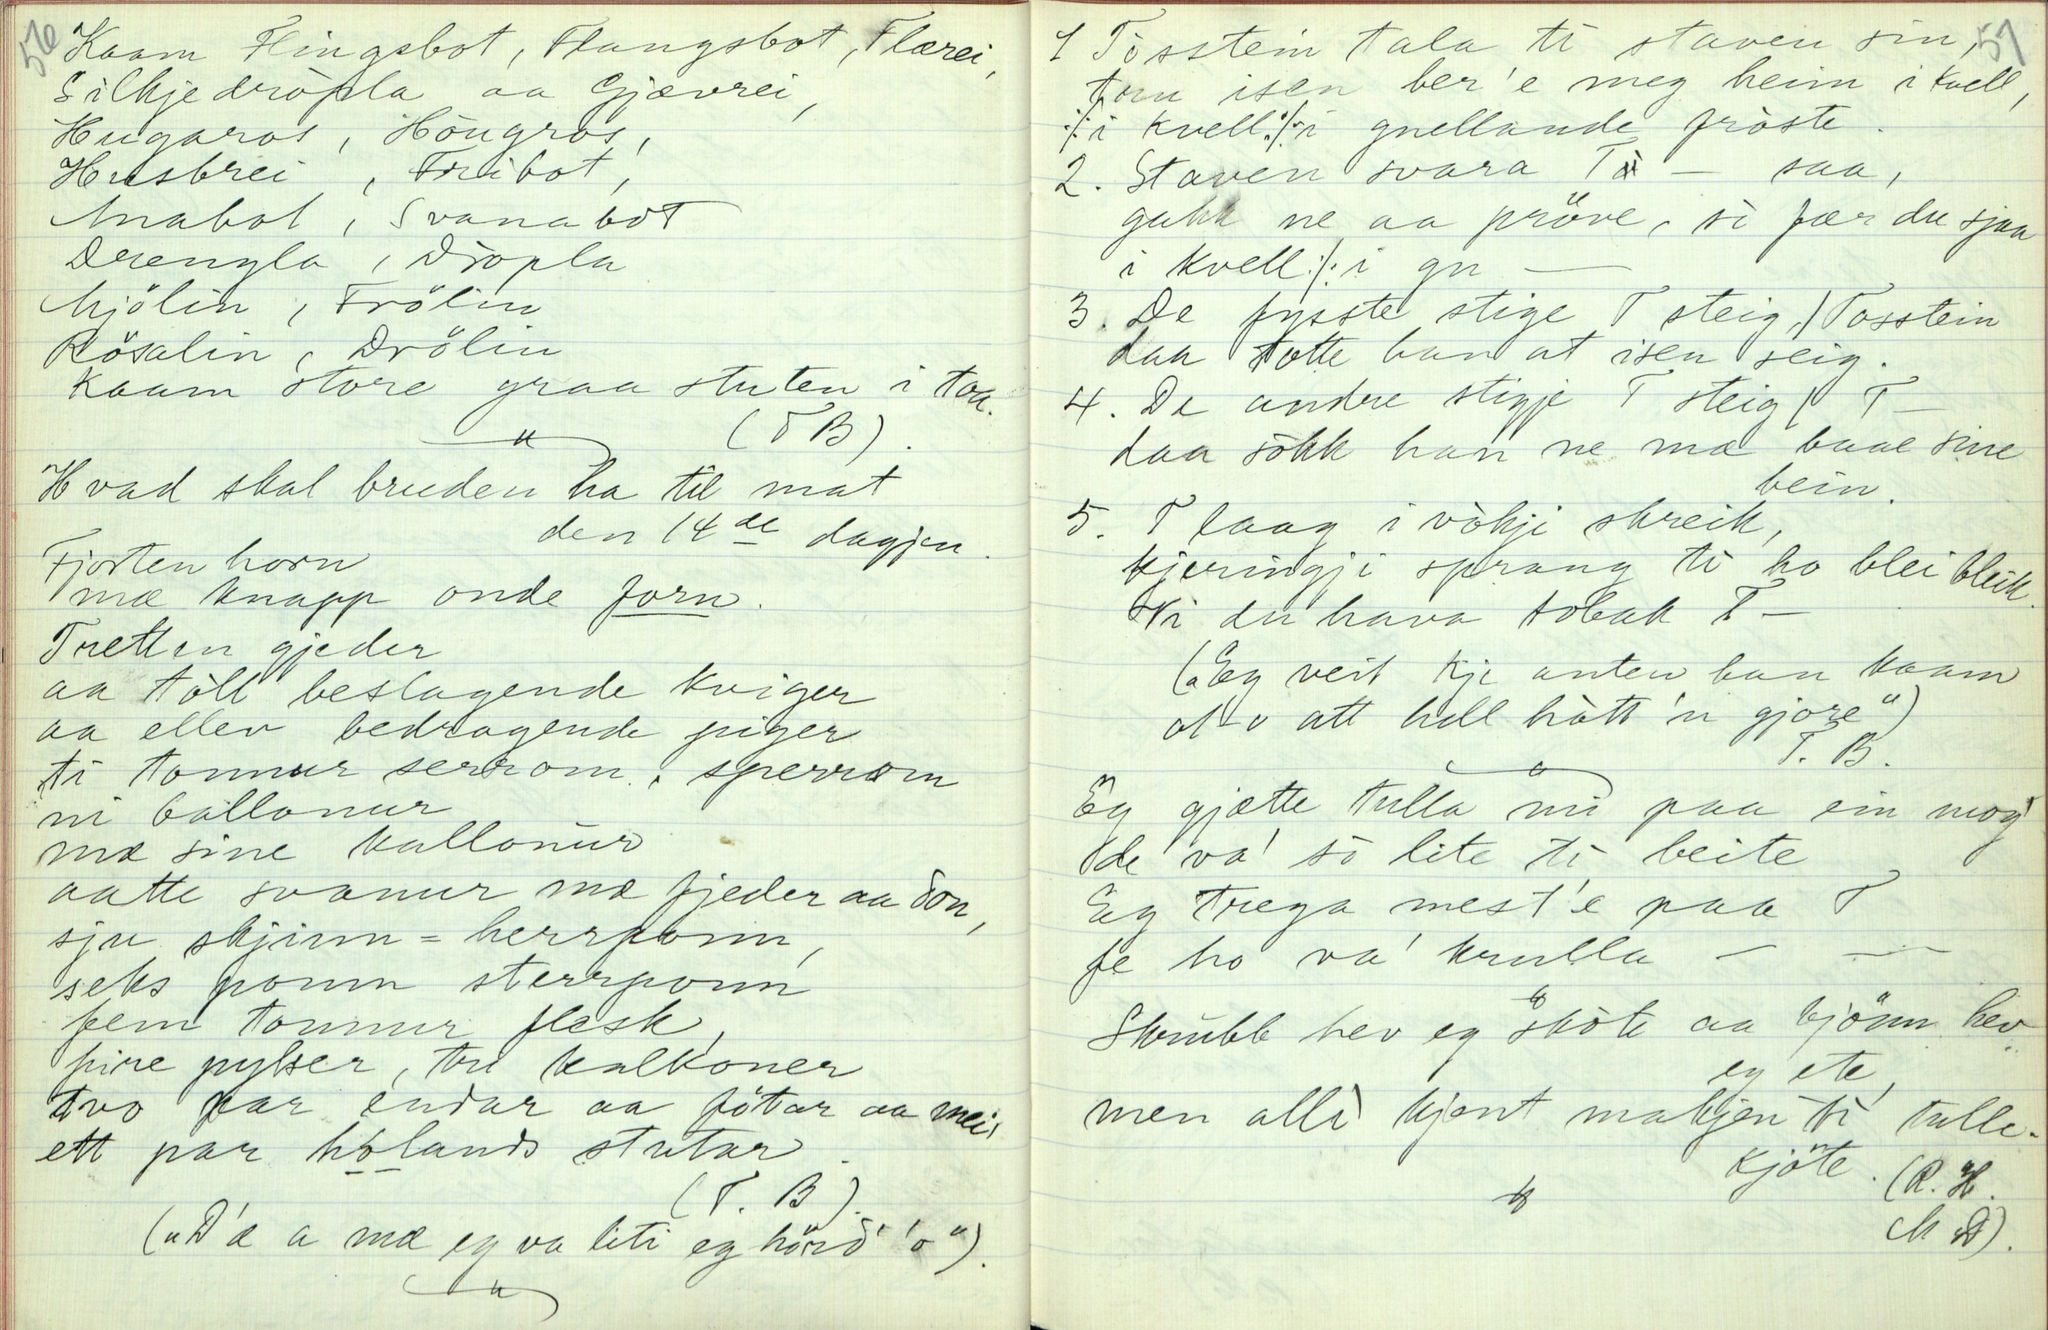 56
Kaam Flingsbot, Flangsbot, Flærei,
Silkjedròpla aa Gjævrei,
Hugaros, Hòngros,
Husbrei, Fribot,
Anabot, Svanabot
Drengla, Dròpla
Mjölin, Frölin
Rösalin, Drölin
kaam store graa stuten i taa.
(T B).
Hvad skal bruden ha til mat
den 14de dagjen.
Fjorten horn
mæ knapp onde forn.
Tretten gjeder
aa tòll beslagende kviger
aa ellev bedragende piger
ti tonnur serrom, sperrom
ni ballonur
mæ sine kallonur
aatte svanur mæ fjeder aa don,
sju skjinn=herrponn,
seks ponn sterrponn
fem tonnur flesk,
fire pylser, tri kalkoner
tvo par endar aa fötar aa mei,
ett par holands stutar.
(T. B).
("D'æ a mæ eg va liti eg hörd' 'o").
57
1 Tòsstein tala ti staven sin,
tru isen ber'e meg heim i kvell,
·/. i kvell ·/. i gnellande fròste.
2. Staven svara Tò — saa,
gakk ne aa pröve, sò fær du sjaa
i kvell ·/. i gn —
3. De fysste stige T steig, / Tosstein
daa totte han at isen seig.
4. De andre stigje T steig / T —
daa sòkk han ne mæ baae sine
bein.
5. T laag i vòkji skreik,
kjeringji sprang ti ho blei bleik.
Vi du hava tobak T —
("Eg veit kje anten han kaam
ot o att hell hòtt 'n gjore")
T. B.
Eg gjætte tulla mi paa ein mog'
de va' sò lite ti beite
Eg trega mest'e paa T
fe ho va' krulla — —
Skrubb hev eg skòte aa bjönn hev
eg ete,
men alli kjent makjen ti tulle-
kjöte. (R. H.
M D).